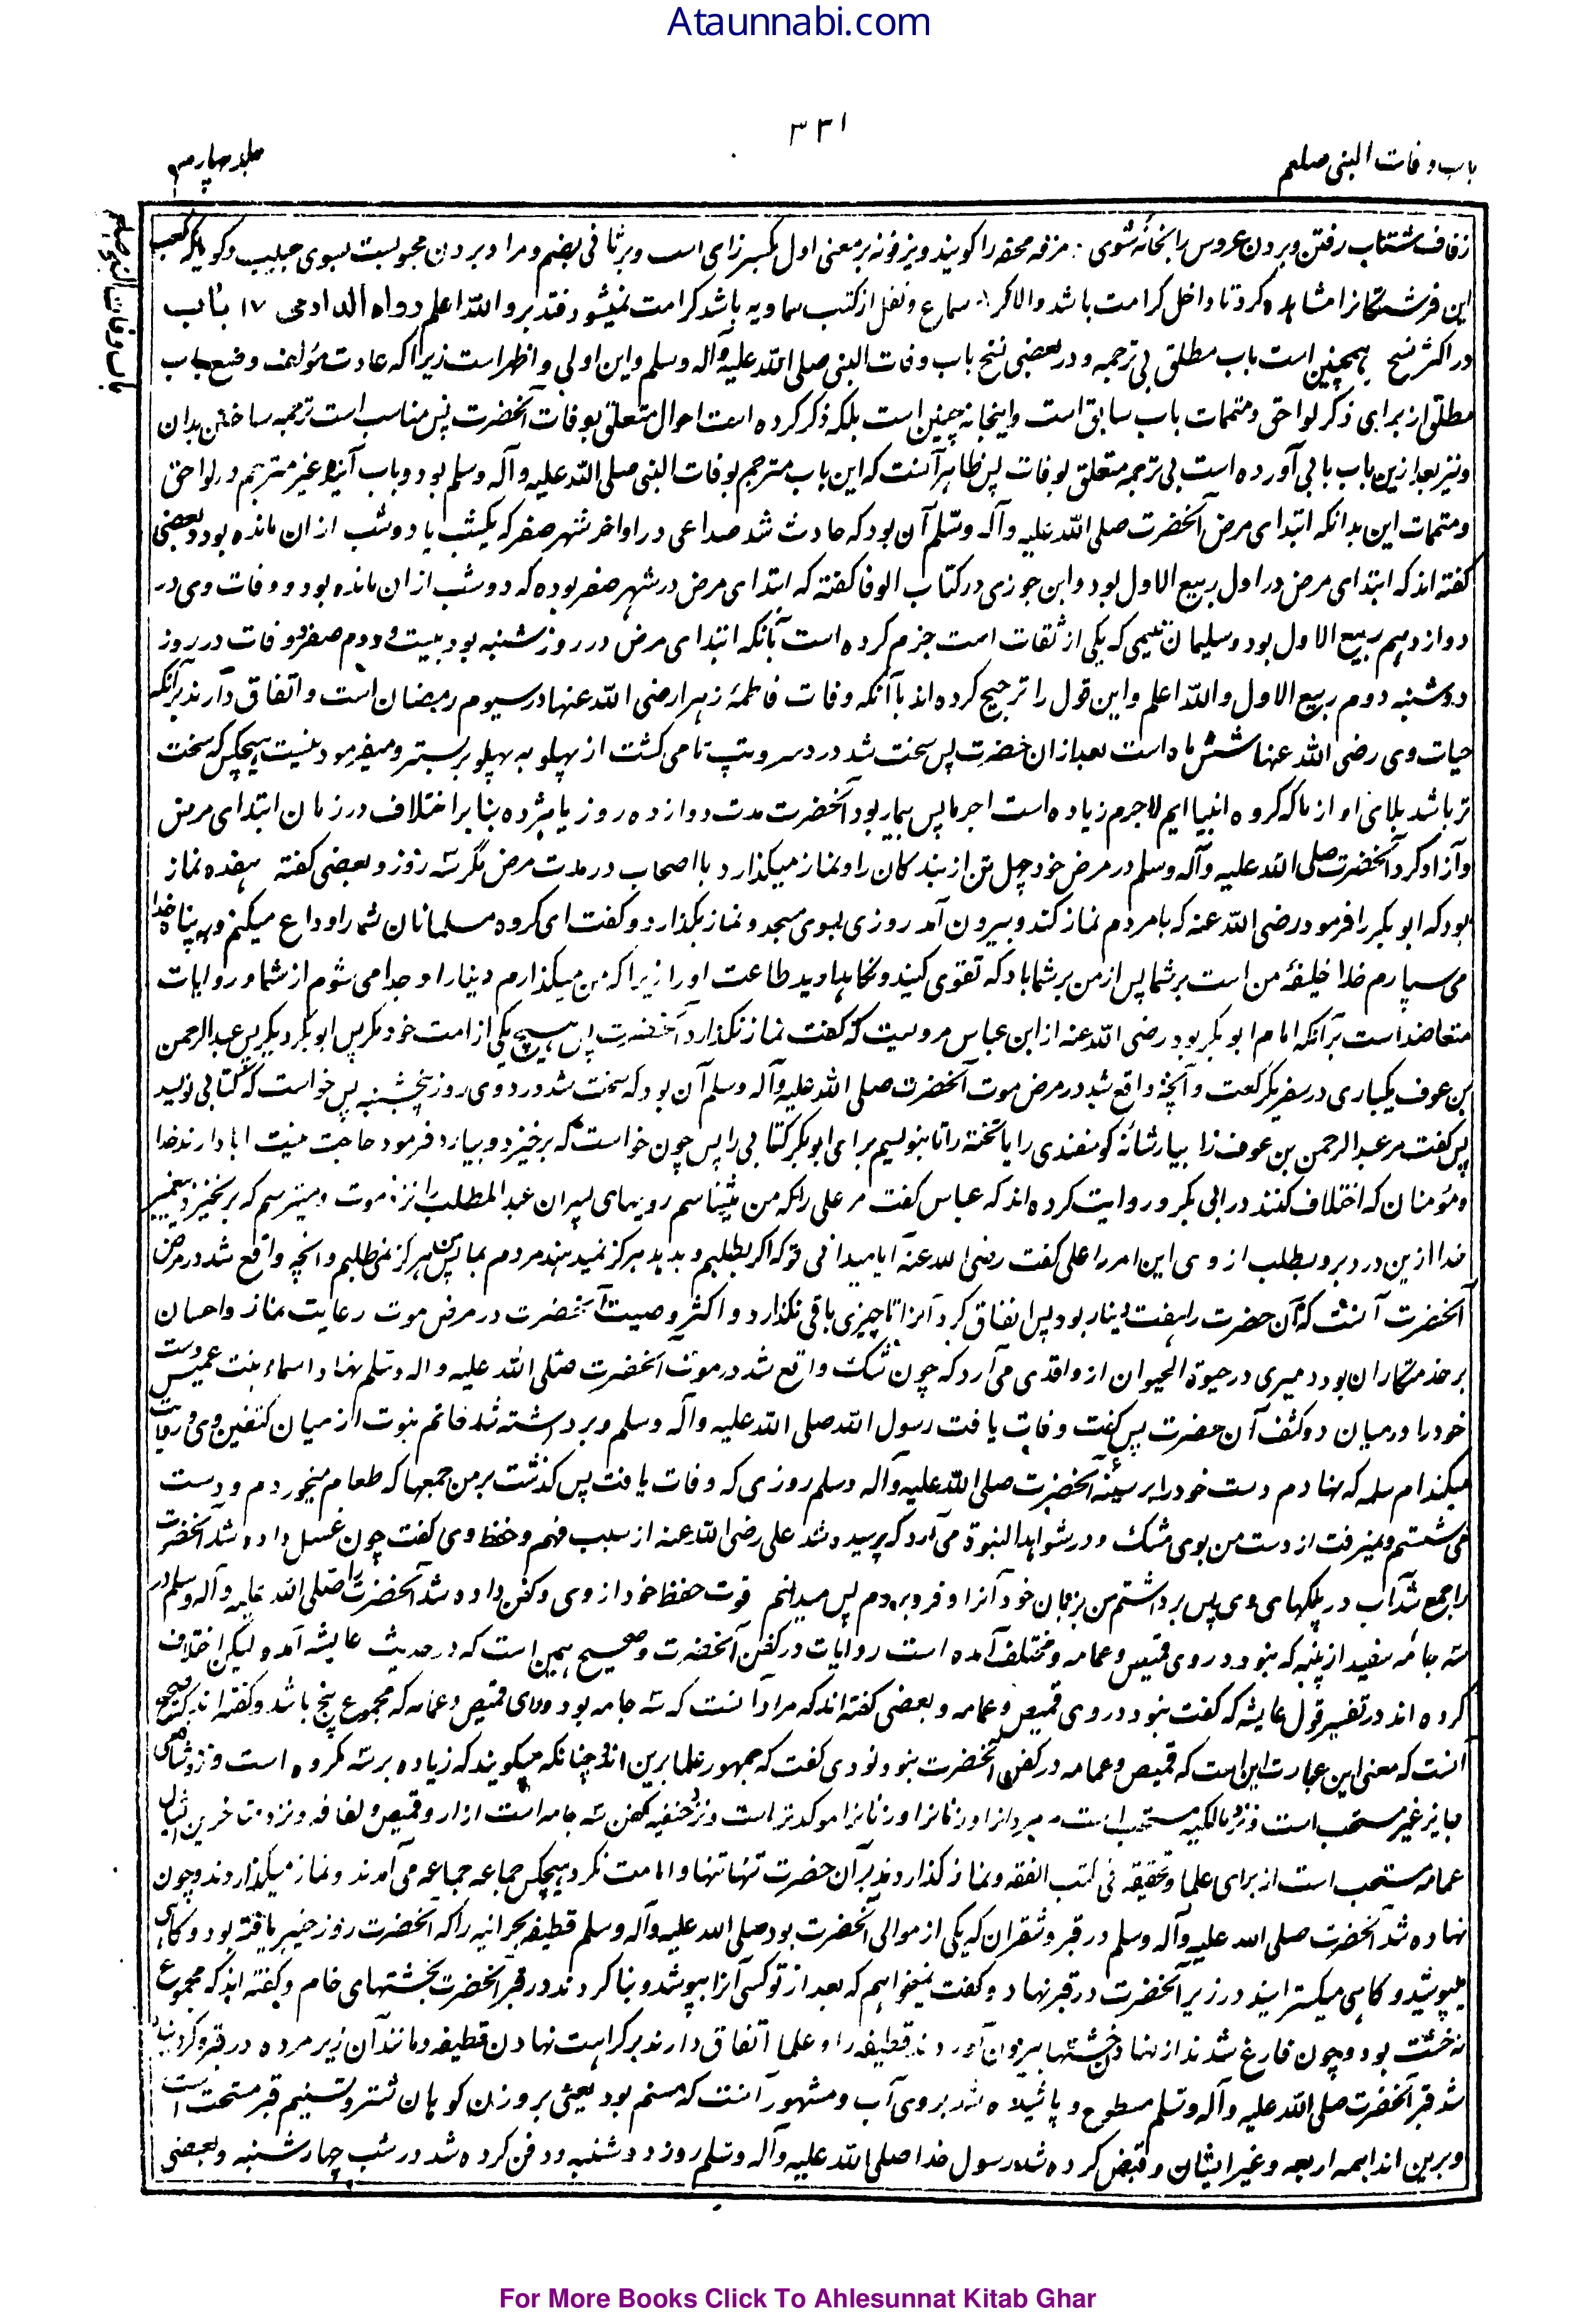 Ataunnabi.com
۳۳۱
باب وفات النبی صلعم
جلد چهارم
باب وفات النبی صلعم
زفاف شتاب رفتن و بردن عروس را بخانه شوی مزفه محفه را گویند و یزفونه بر معنی اول بکسر زای است و بر ثانی بضم و مراد بردن محبوبست بسوی حبیب و گویا که کعب
این فرشتگانرا مشاهده کرد تا داخل کرامت باشد والا اگر سماع و نقل از کتب سماویه باشد کرامت نمیشود فتدبر والله اعلم رواه الدارمی ۱۷ باب
در اکثر نسخ همچنین است باب مطلق بی ترجمه و در بعضی نسخ باب وفات النبی صلی الله علیه وآله وسلم و این اولی و اظهر است زیرا که عادت مؤلف وضع باب
مطلق از برای ذکر لواحق و متممات باب سابق است و اینجا نه چنین است بلکه ذکر کرده است احوال متعلق بوفات آنحضرت پس مناسب است ترجمه ساختن بدان
و نیز بعد ازین باب بابی آورده است بی ترجمه متعلق بوفات پس ظاهر آنست که این باب مترجم بوفات النبی صلی الله علیه وآله وسلم بود و باب آینده غیر مترجم در لواحق
و متممات این بدانکه ابتدای مرض آنحضرت صلی الله علیه وآله وسلم آن بود که حادث شد صداعی در اواخر شهر صفر که یکشب یا دو شب از ان مانده بود و بعضی
گفته اند که ابتدای مرض در اول ربیع الاول بود و ابن جوزی در کتاب الوفا گفته که ابتدای مرض در شهر صفر بوده که دو شب از ان مانده بود و وفات وی در
دوازدهم ربیع الاول بود و سلیمان تیمی که یکی از ثقات است جزم کرده است بآنکه ابتدای مرض در روز شنبه بود بیست و دوم صفر و وفات در روز
دوشنبه دوم ربیع الاول والله اعلم و این قول را ترجیح کرده اند با آنکه وفات فاطمهٔ زهرا رضی الله عنها در سیوم رمضان است و اتفاق دارند برآنکه
حیات وی رضی الله عنها شش ماه است بعد ازان حضرت پس سخت شد درد سر و تپ تا می گشت از پهلو به پهلو بر بستر و میفرمود نیست هیچکس که سخت
تر باشد بلای او از ما که گروه انبیا ایم لاجرم زیاده است اجر ما پس بیمار بود آنحضرت مدت دوازده روز یا هژده بنا بر اختلاف در زمان ابتدای مرض
و آزاد کرد آنحضرت صلی الله علیه وآله وسلم در مرض خود چهل تن از بندکان را و نماز میگذارد با اصحاب در مدت مرض مگر سه روز و بعضی گفته هفده نماز
بود که ابوبکر را فرمود رضی الله عنه که با مردم نماز کند و بیرون آمد روزی بسوی مسجد و نماز بگذارد و گفت ای گروه مسلمانان شما را وداع میکنم و به پناه خدا
می سپارم خدا خلیفهٔ من است بر شما پس از من بر شما باد که تقوی کنید و نگاهدارید طاعت او را زیرا که من میگذارم دنیا را و جدا می شوم از شما و روایات
متعاضد است برآنکه امام ابوبکر بود رضی الله عنه از ابن عباس مرویست که گفت نماز نگذارد آنحضرت پس هیچ یکی از امت خود مگر پس ابوبکر و دیگر پس عبدالرحمن
بن عوف یکباری در سفر یکرکعت و آنچه واقع شد در مرض موت آنحضرت صلی الله علیه وآله وسلم آن بود که سخت شد درد وی روز پنجشنبه پس خواست که کتابی نویسد
پس گفت مر عبدالرحمن بن عوف را بیار شانه گوسفندی را یا تخته را تا بنویسم برای ابوبکر کتابی را پس چون خواست که برخیزد و بیارد فرمود حاجت نیست ابا دارند خدا
و مؤمنان که اختلاف کنند در ابی بکر و روایت کرده اند که عباس گفت مر علی را که من میشناسم رویهای پسران عبدالمطلب را نزد موت و میترسم که برنخیزد پیغمبر
خدا ازین درد برو بطلب از وی این امر را علی گفت رضی الله عنه آیا میدانی تو که اگر بطلبم و بدهد هرگز نمیدهند مردم بما پس هرگز نمی طلبم و آنچه واقع شد در مرض
آنحضرت آنست که آن حضرت را هفت دینار بود پس انفاق کرد آنرا تا چیزی باقی نگذارد و اکثر وصیت آنحضرت در مرض موت رعایت نماز و احسان
بر خدمتگاران بود دمیری در حیوة الحیوان از واقدی می آرد که چون شک واقع شد در موت آنحضرت صلی الله علیه وآله وسلم نهاد اسماء بنت عمیس دست
خود را درمیان دو کتف آن حضرت پس گفت وفات یافت رسول الله صلی الله علیه وآله وسلم و برداشته شد خاتم نبوت از میان کتفین وی و روایت
میکند ام سلمه که نهادم دست خود را بر سینهٔ آنحضرت صلی الله علیه وآله وسلم روزی که وفات یافت پس گذشت بر من جمعها که طعام میخوردم و دست
می شستم و نمیرفت از دست من بوی مشک و در شواهد النبوة می آرد که پرسیده شد علی رضی الله عنه از سبب فهم و حفظ وی گفت چون غسل داده شد آنحضرت
را جمع شد آب در پلکهای وی پس برداشتم من بزبان خود آنرا و فرو بردم پس میدانم قوت حفظ خود از وی و کفن داده شد آنحضرت را صلی الله علیه وآله وسلم در
سه جامه سفید از پنبه که نبود در وی قمیص و عمامه و مختلف آمده است روایات در کفن آنحضرت و صحیح همین است که در حدیث عایشه آمد و لیکن اختلاف
کرده اند در تفسیر قول عایشه که گفت نبود در وی قمیص و عمامه و بعضی گفته اند که مراد آنست که سه جامه بود ورای قمیص و عمامه که مجموع پنج باشد و گفته اند که صحیح
آنست که معنی این عبارت این است که قمیص و عمامه در کفن آنحضرت نبود نووی گفت که جمهور علما برین اند چنانکه میگویند که زیاده بر سه مکروه است و نزد شافعی
جایز غیر مستحب است و نزد مالکیه مستحب است مردانرا و زنانرا و زنانرا موکدتر است و نزد حنفیه کفن سه جامه است ازار و قمیص و لفافه و نزد متاخرین ایشان
عمامه مستحب است از برای علما و تحقیقه فی کتب الفقه و نماز گذاردند بر آن حضرت تنها تنها و امامت نکرد هیچکس جماعه جماعه می آمدند و نماز میگذاردند و چون
نهاده شد آنحضرت صلی الله علیه وآله وسلم در قبر و شقران که یکی از موالی آنحضرت بود صلی الله علیه وآله وسلم قطیفه بحرانیه را که آنحضرت روز خیبر یافته بود و گاهی
میپوشید و گاهی میگسترانید در زیر آنحضرت در قبر نهاد و گفت نمیخواهم که بعد از تو کسی آنرا بپوشد و بنا کردند در قبر آنحضرت بخشتهای خام و گفته اند که مجموع
نه خشت بود و چون فارغ شدند از نهادن خشتها بیرون آوردند قطیفه را و علما اتفاق دارند بر کراهت نهادن قطیفه و مانند آن زیر مرده در قبر و گردانیده
شد قبر آنحضرت صلی الله علیه وآله وسلم مسطوح و پاشیده شد بروی آب و مشهور آنست که مسنم بود یعنی بر وزن کوهان شتر و تسنیم قبر مستحب است
و برین اند ایمه اربعه و غیر ایشان و قبض کرده شد رسول خدا صلی الله علیه وآله وسلم روز دوشنبه و دفن کرده شد در شب چهارشنبه و بعضی
For More Books Click To Ahlesunnat Kitab Ghar